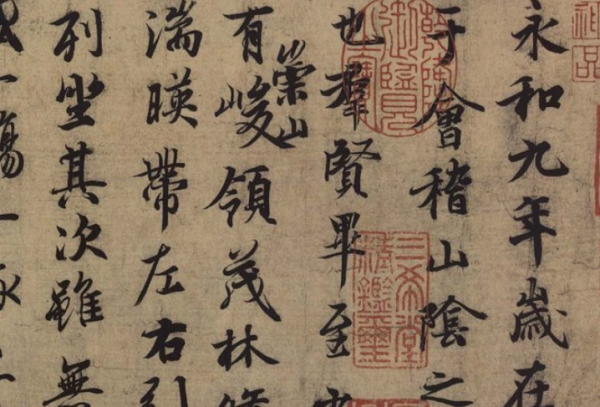 永和九年歲在
于會稽山陰之
也羣賢畢至
有崇山峻領茂林脩
湍暎帶左右引
列坐其次雖無
三希堂
精鑑璽